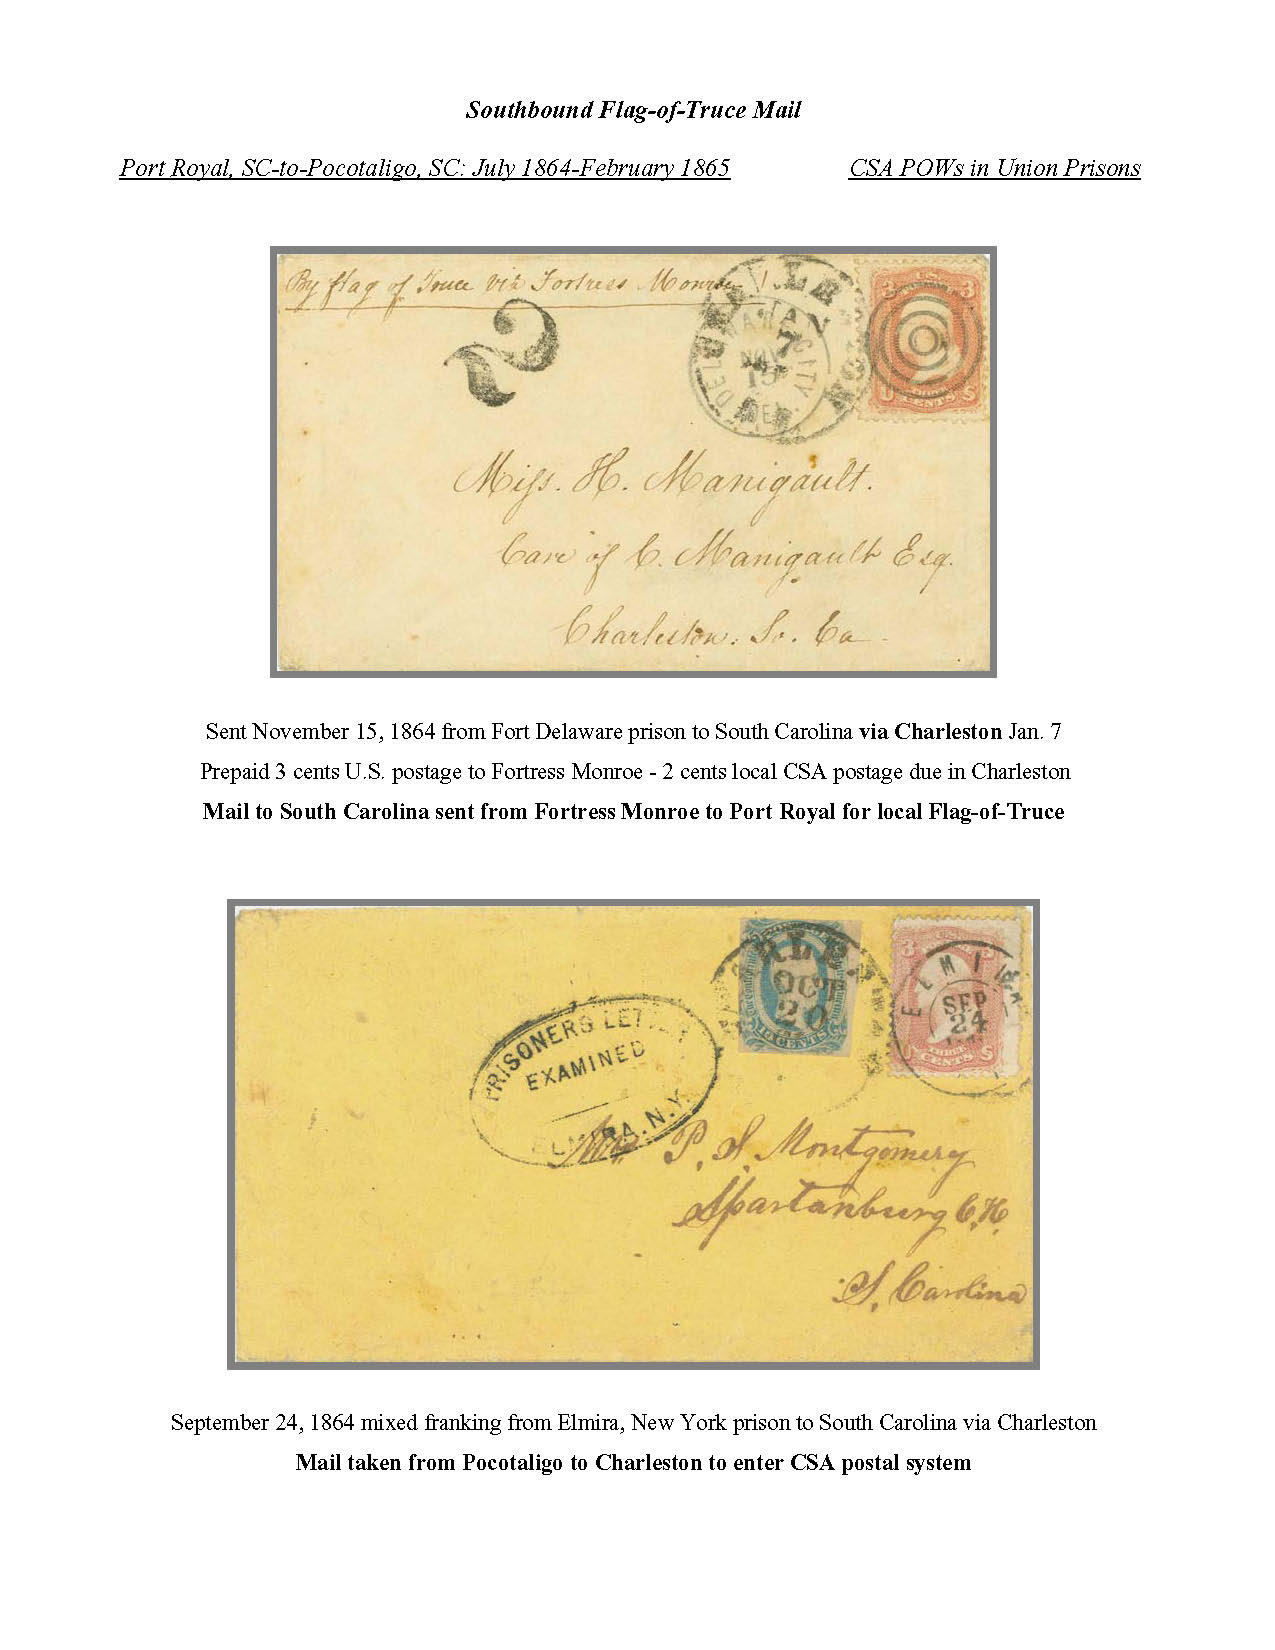 Southbound Flag-of-Truce Mail
Port Royal, SC-to-Pocotaligo, SC: July 1864-February 1865 CSA POWs in Union Prisons
By flag of Truce via Fortress Monroe
2
DELAWARE CITY
NOV
15
DEL.
JAN
7
3 3
U S
CENTS
Miss. H. Manigault.
Care of C. Manigault Esq.
Charleston. So. Ca.
Sent November 15, 1864 from Fort Delaware prison to South Carolina via Charleston Jan. 7
Prepaid 3 cents U.S. postage to Fortress Monroe - 2 cents local CSA postage due in Charleston
Mail to South Carolina sent from Fortress Monroe to Port Royal for local Flag-of-Truce
OCT
20
CENTS
3
ELMIRA
SEP
24
CENTS S
PRISONERS LETTER
EXAMINED
ELMIRA. N.Y.
Mrs P. S. Montgomery
Spartanburg C.H.
S. Carolina
September 24, 1864 mixed franking from Elmira, New York prison to South Carolina via Charleston
Mail taken from Pocotaligo to Charleston to enter CSA postal system